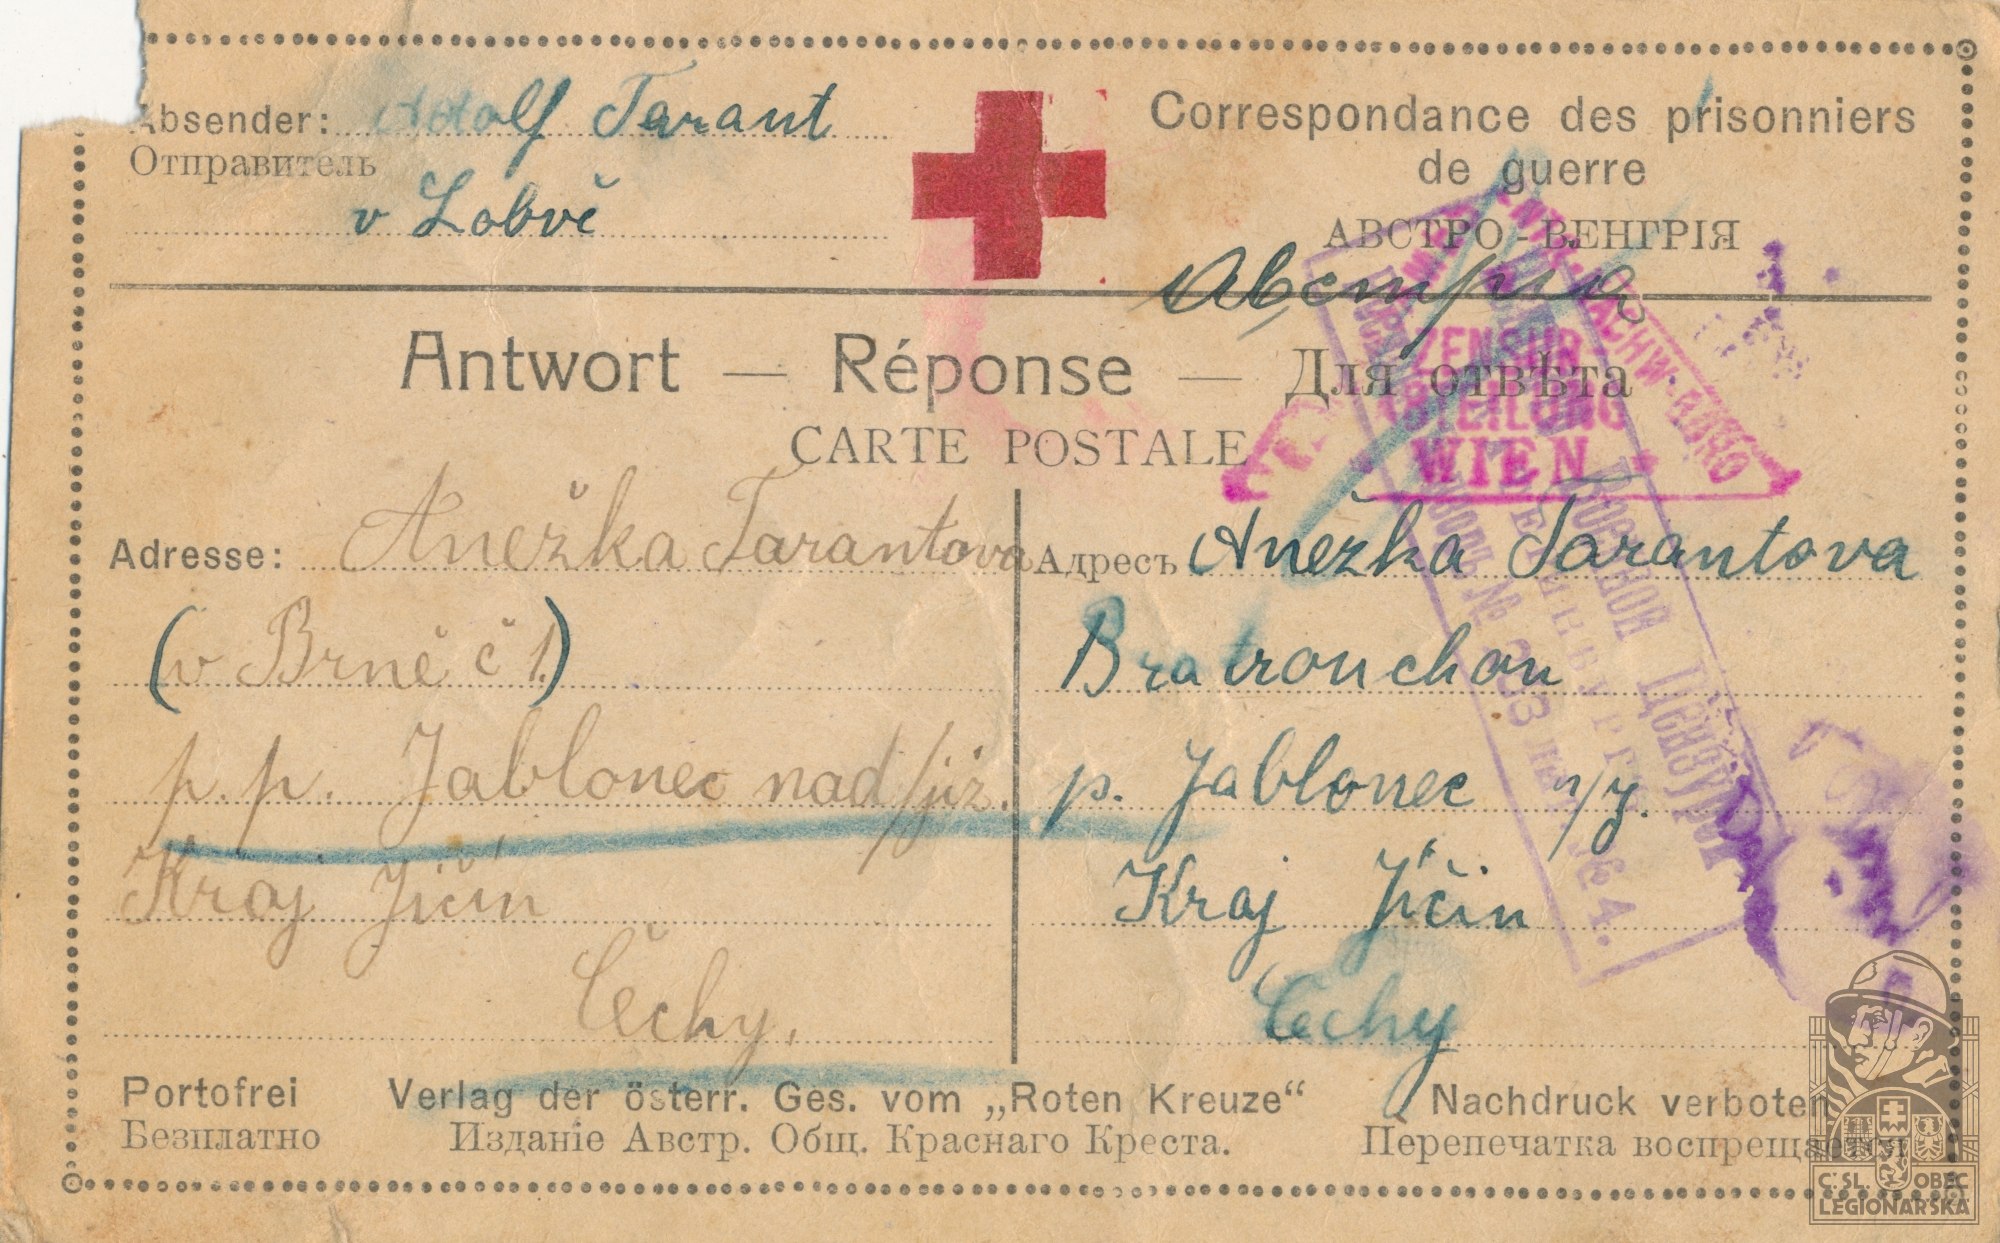 Absender: Adolf Tarant
Отправитель
v Lobvě
Correspondance des prisonniers
de guerre
АВСТРО-ВЕНГРІЯ
Австрия
Antwort — Réponse — Для отвѣта
CARTE POSTALE
ZENSUR
ABTEILUNG
WIEN
Adresse: Anežka Tarantova
(v Brně č 1.)
p. p. Jablonec nad/jiz.
Kraj Jičín
Čechy.
Адресъ Anežka Tarantova
Bratrouchou
p. Jablonec n/j.
Kraj Jičin
Čechy
Военной Цензуры
Portofrei
Безплатно
Verlag der österr. Ges. vom „Roten Kreuze“
Изданіе Австр. Общ. Краснаго Креста.
Nachdruck verboten
Перепечатка воспрещается
Č. SL. OBEC
LEGIONÁŘSKÁ